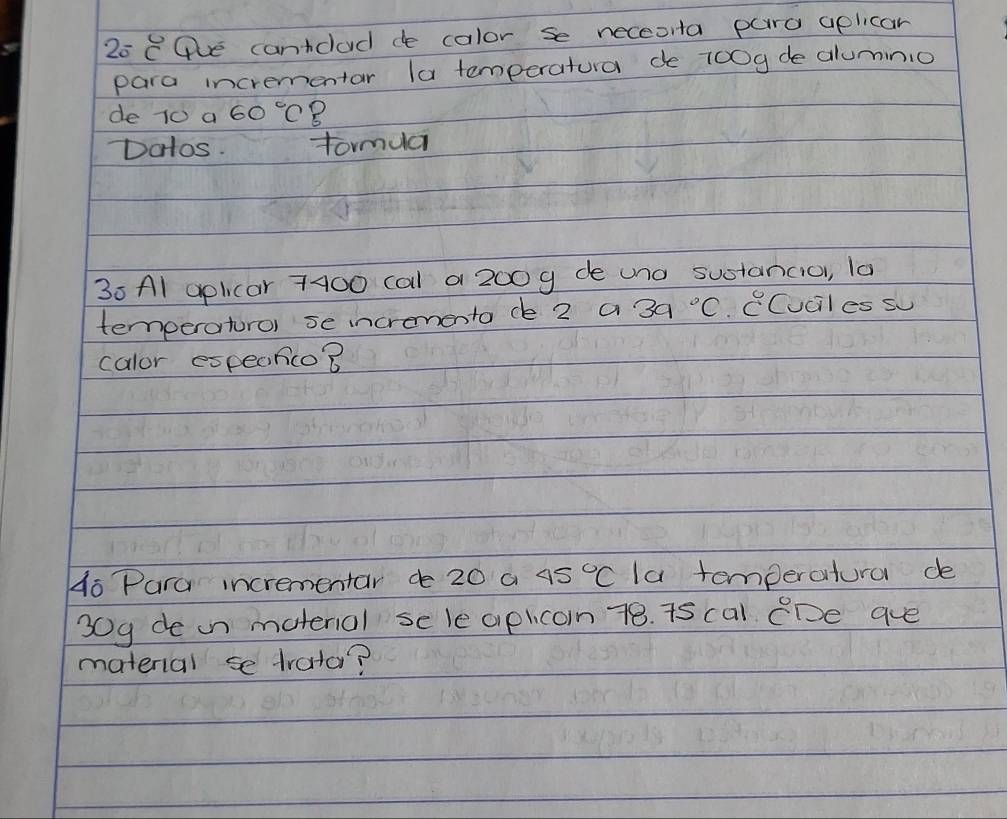 2.- ¿Qué cantidad de calor se necesita para aplicar
para incrementar la temperatura de 100g de aluminio
de 10 a 60 °C?
Datos. formula
3.- Al aplicar 7400 cal a 200g de una sustancia, la
temperatura se incremento de 2 a 39 °C. ¿Cuál es su
calor especifico?
4.- Para incrementar de 20 a 45 °C la temperatura de
30g de un material se le aplican 78.75 cal. ¿De que
material se trata?